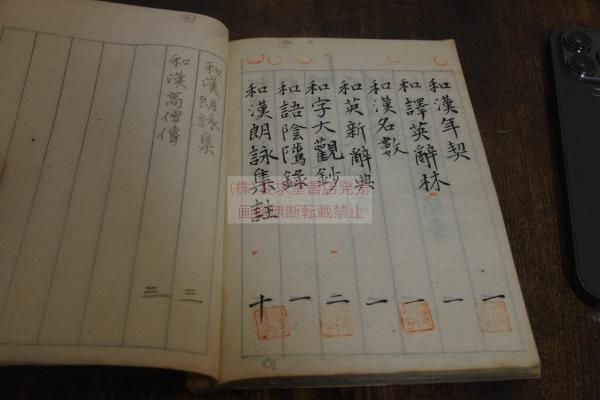 和漢年契 一
和譯英辭林 一
和漢名數 一
和英新辭典 一
和字大觀鈔 二
和語陰隲錄 一
和漢朗詠集註 十
和漢朗詠集 二
和漢高僧傳 三
画像無断転載禁止